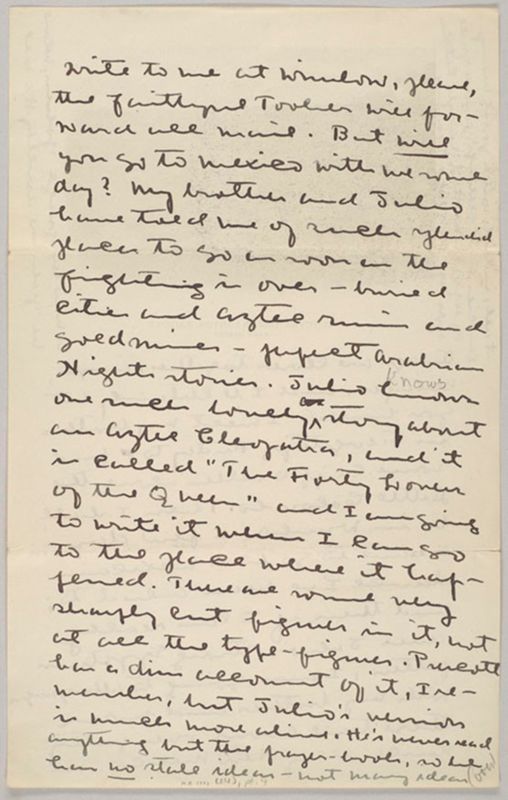 write to me at Winslow, please,
the faithful Tooker will for-
ward all mail. But will
you go to Mexico with me some
day? My brother and Julio
have told me of such splendid
places to go as soon as the
fighting is over - buried
cities and Aztec ruins and
gold mines - perfect Arabian
Nights stories. Julio knows
knows
one such lovely story about
an Aztec Cleopatra, and it
is called "The Forty Lovers
of the Queen" and I am going
to write it when I can go
to the place where it hap-
pened. There are some very
sharply cut figures in it, not
at all the type-figures. Prescott
has a dim account of it, I re-
member, but Julio's version
is much more alive. He's never read
anything but the prayer-book, so he
has no stale ideas - not many ideas